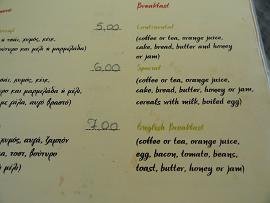 Breakfast
5,00 Continental
τσάι, χυμός, κέικ, (coffee or tea, orange juice,
βούτυρο και μέλι ή μαρμελάδα cake, bread, butter and honey
or jam)
6,00 Special
τσάι, χυμός, κέικ, (coffee or tea, orange juice,
και μαρμελάδα ή μέλι, cake, bread, butter, honey or jam,
με γάλα, αυγό βραστό) cereals with milk, boiled egg)
7,00 English Breakfast
χυμός, αυγά, ζαμπόν (coffee or tea, orange juice,
τοστ, βούτυρο egg, bacon, tomato, beans,
μέλι) toast, butter, honey or jam)